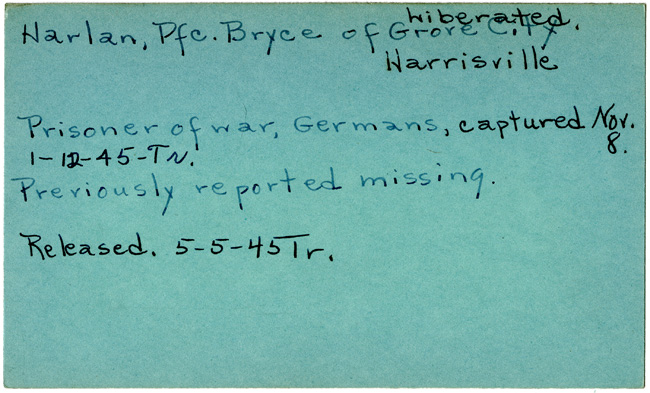 Liberated.
Harlan, Pfc. Bryce of Grove City
Harrisville
Prisoner of war, Germans, captured Nov. 8.
1-12-45-Tr.
Previously reported missing.
Released. 5-5-45 Tr.